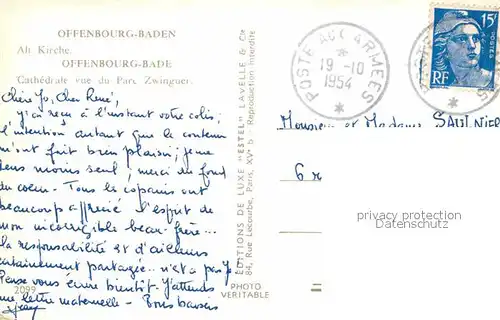 OFFENBOURG-BADEN
Alt Kirche.
OFFENBOURG-BADE
Cathédrale vue du Parc Zwinguer.
Chère Jo, Cher René,
j'ai reçu à l'instant votre colis;
l'intention autant que le contenu
m'ont fait bien plaisir; je me
sens moins seul; merci du fond
du coeur. Tous les copains ont
beaucoup apprécié l'esprit de
mon incorrigible beau-frère...
la responsabilité et d'ailleurs
certainement partagée.. n'est-ce pas Jo
Pense vous écrire bientôt. J'attends
une lettre maternelle - Bons baisers
2099
ÉDITIONS DE LUXE "ESTEL" LAVELLE & Cie
84, Rue Lecourbe, Paris, XVe b Reproduction interdite
PHOTO
VERITABLE
POSTE AUX ARMEES
19 -10
1954
15F
POSTES
RF
Monsieur et Madame SAULNIER
6 r
privacy protection